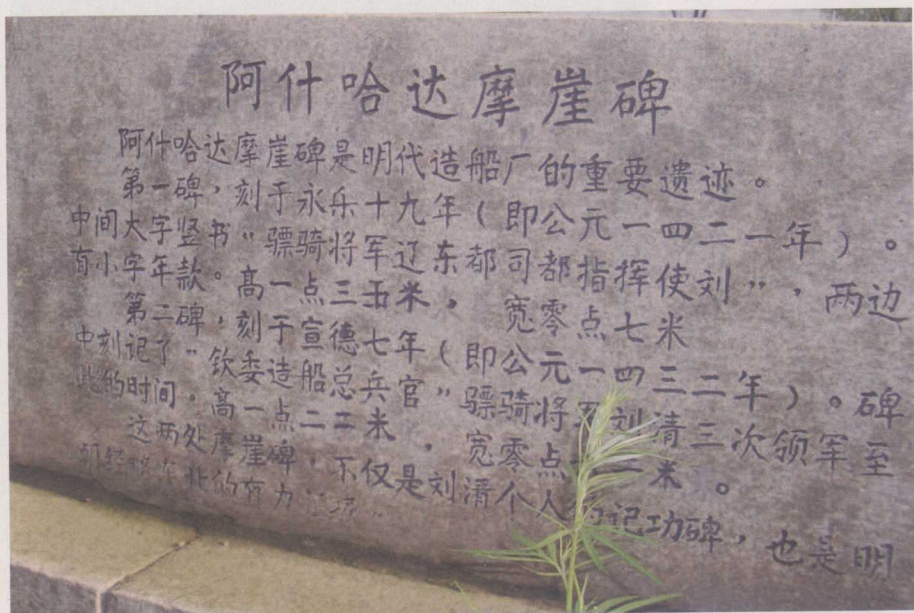 阿什哈达摩崖碑
阿什哈达摩崖碑是明代造船厂的重要遗迹。
第一碑，刻于永乐十九年（即公元一四二一年）。
中间大字竖书“骠骑将军辽东都司都指挥使刘”，两边
有小字年款。高一点三五米，宽零点七米
第二碑，刻于宣德七年（即公元一四三二年）。碑
中刻记了“钦委造船总兵官”骠骑将军刘清三次领军至
此的时间。高一点二二米，宽零点一米。
这两处摩崖碑，不仅是刘清个人的记功碑，也是明
朝经略东北的有力